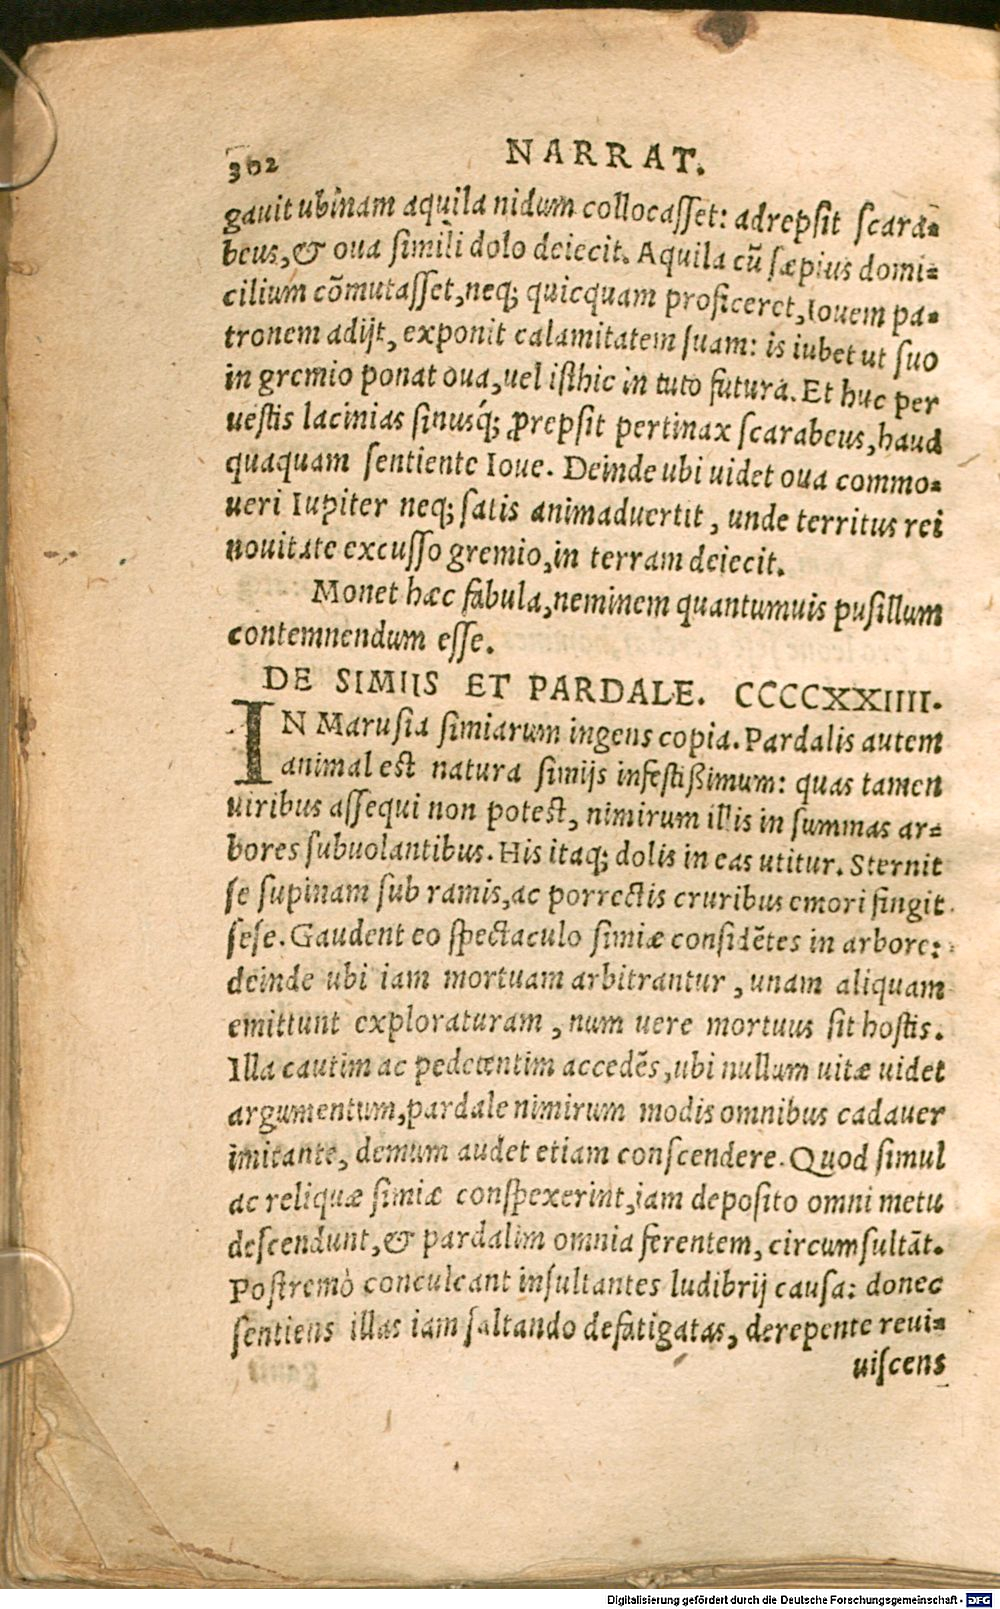 302 NARRAT.
gauit ubinam aquila nidum collocasset: adrepsit scara-
beus, & oua simili dolo deiecit. Aquila cū sæpius domi-
cilium cōmutasset, neq; quicquam proficeret, Iouem pa-
tronem adijt, exponit calamitatem suam: is iubet ut suo
in gremio ponat oua, uel isthic in tuto futura. Et huc per
uestis lacinias sinusq́; prepsit pertinax scarabeus, haud
quaquam sentiente Ioue. Deinde ubi uidet oua commo-
ueri Iupiter neq; satis animaduertit, unde territus rei
nouitate excusso gremio, in terram deiecit.
Monet hæc fabula, neminem quantumuis pusillum
contemnendum esse.
DE SIMIIS ET PARDALE. CCCCXXIIII.
IN Marusia simiarum ingens copia. Pardalis autem
animal est natura simijs infestißimum: quas tamen
uiribus assequi non potest, nimirum illis in summas ar-
bores subuolantibus. His itaq; dolis in eas utitur. Sternit
se supinam sub ramis, ac porrectis cruribus emori fingit
sese. Gaudent eo spectaculo simiæ considētes in arbore:
deinde ubi iam mortuam arbitrantur, unam aliquam
emittunt exploraturam, num uere mortuus sit hostis.
Illa cautim ac pedetentim accedēs, ubi nullum uitæ uidet
argumentum, pardale nimirum modis omnibus cadauer
imitante, demum audet etiam conscendere. Quod simul
ac reliquæ simiæ conspexerint, iam deposito omni metu
descendunt, & pardalim omnia ferentem, circumsultāt.
Postremò conculcant insultantes ludibrij causa: donec
sentiens illas iam saltando defatigatas, derepente reui-
uiscens
Digitalisierung gefördert durch die Deutsche Forschungsgemeinschaft - DFG